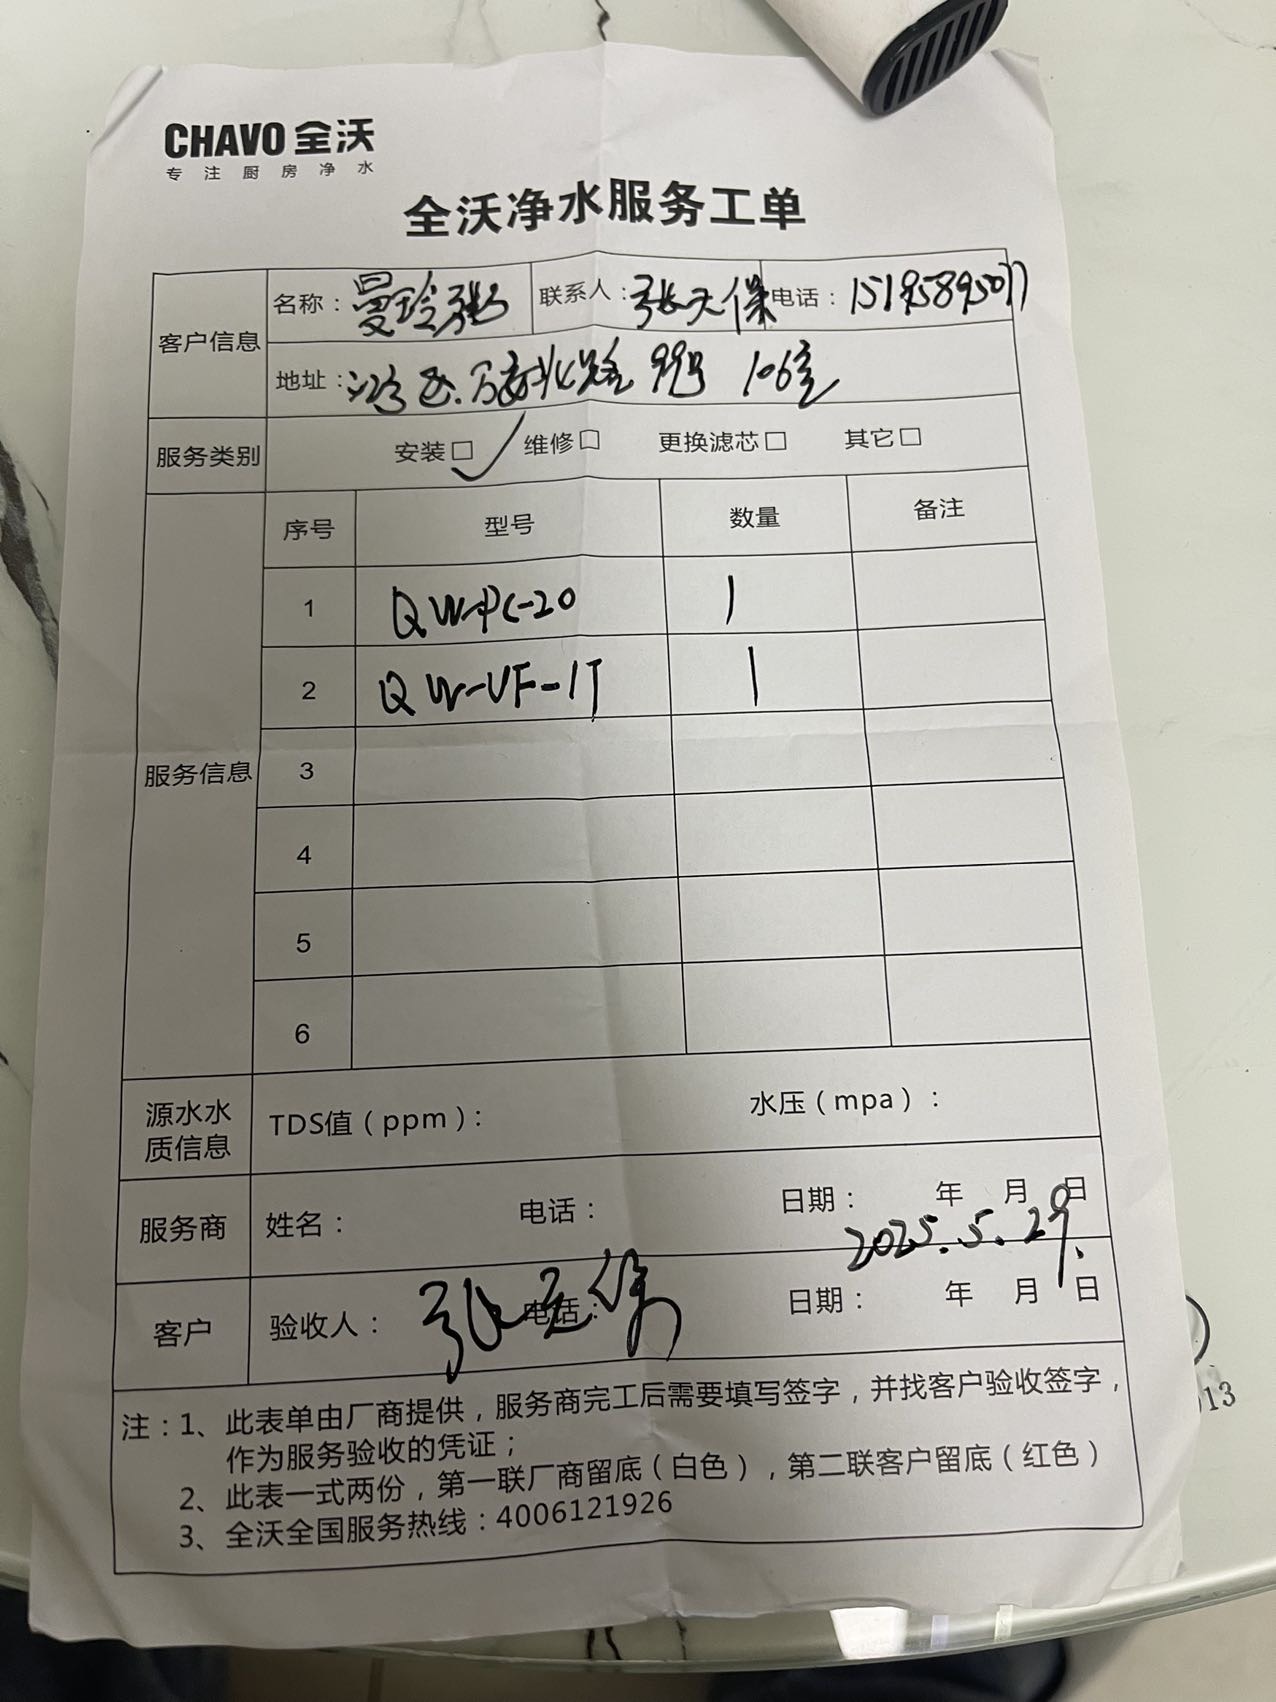 CHAVO 全沃
专注厨房净水
全沃净水服务工单
客户信息
名称：曼玲粥 联系人：张天保 电话：15195895077
地址： 99号 106室
服务类别 安装□ ✓ 维修□ 更换滤芯□ 其它□
服务信息
序号 型号 数量 备注
1 QW-PC-20 1
2 QW-UF-1T 1
3
4
5
6
源水水质信息 TDS值（ppm）： 水压（mpa）：
服务商 姓名： 电话： 日期： 年 月 日
2025.5.29.
客户 验收人： 张天保 电话： 日期： 年 月 日
注：1、此表单由厂商提供，服务商完工后需要填写签字，并找客户验收签字，
作为服务验收的凭证；
2、此表一式两份，第一联厂商留底（白色），第二联客户留底（红色）
3、全沃全国服务热线：4006121926
013